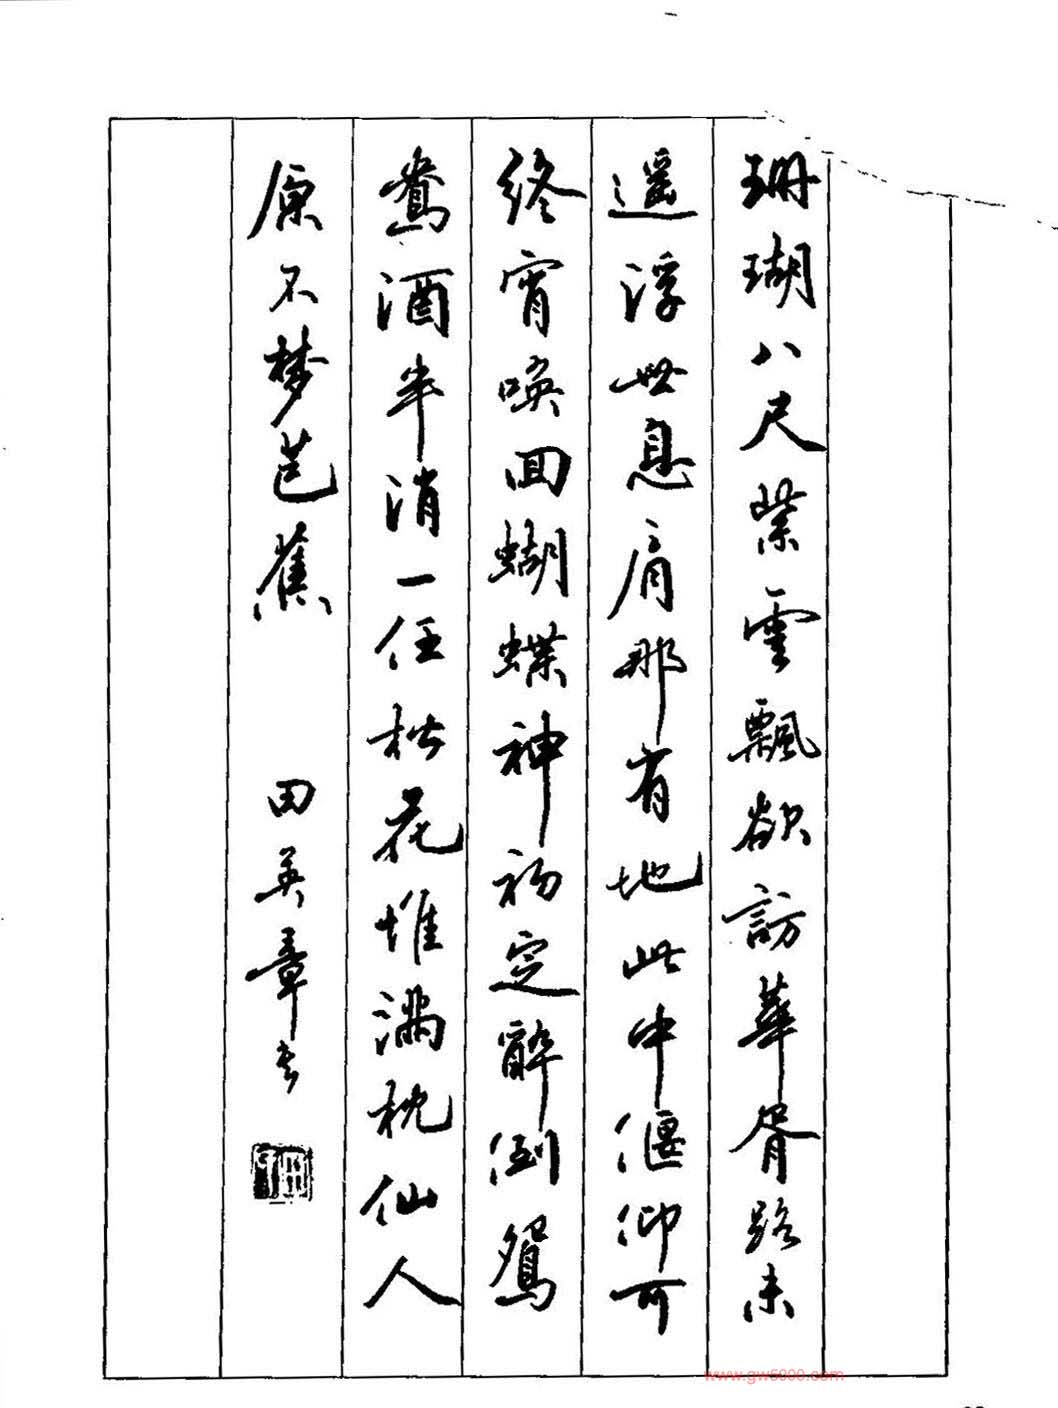 珊瑚八尺紫雲飄欲訪華胥路未
遥浮世息肩那有地此中偃仰可
終宵喚回蝴蝶神初定醉倒鴛
鴦酒半消一任桃花堆满枕仙人
原不梦芭蕉
田英章书
www.gw5000.com